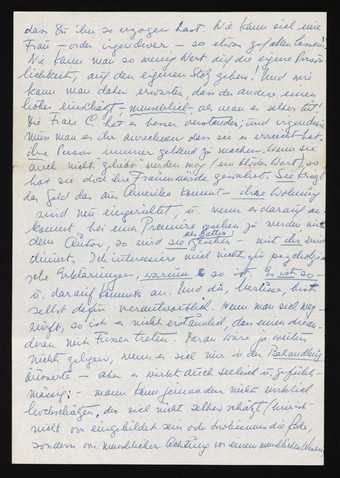 dass Du ihn so erzogen hast. Wie kann sich eine
Frau – oder irgendwer – so etwas gefallen lassen!
Wie kann man so wenig Wert auf die eigene Persön-
lichkeit, auf den eigenen Stolz geben! Und wie
kann man daher erwarten, dass der andere einen
höher einschätzt – menschlich – als man es selber tut!
Die Frau C. hat es besser verstanden; und irgendwie
muss man es ihr anrechnen dass sie es erreicht hat,
ihre Person immer geltend zu machen. Wenn sie
auch nicht geliebt werden mag (ein blödes Wort), so
hat sie doch ihre Frauenwürde gewahrt. Sie kriegt
das Geld das aus Amerika kommt – ihre Wohnung
wird neu eingerichtet, u. wenn es darauf an-
kommt, bei einer Premiere gesehen zu werden mit
dem Autor, so wird sie gesehen – mit ihr wird
diniert. Ich interessiere mich nicht für psycholgi-
sche Erklärungen, warum es so ist. Es ist so –
u. darauf kommts an. Und Du, bist
selbst dafür verantwortlich. Wenn man sich weg-
wirft, so ist es nicht erstaunlich, dass einen die an-
deren mit Füssen treten. Daran wäre ja weiter
nicht gelegen, wenn es sich nur in der Behandlung
äusserte – aber es wirkt auch seelisch u. gefühls-
mässig; – man kann jemanden nicht wirklich
hochschätzen, der sich nicht selber schätzt (womit
nicht von eingebildet sein oder die Rede,
sondern von menschlicher Achtung vor einem menschlichen Wesen)